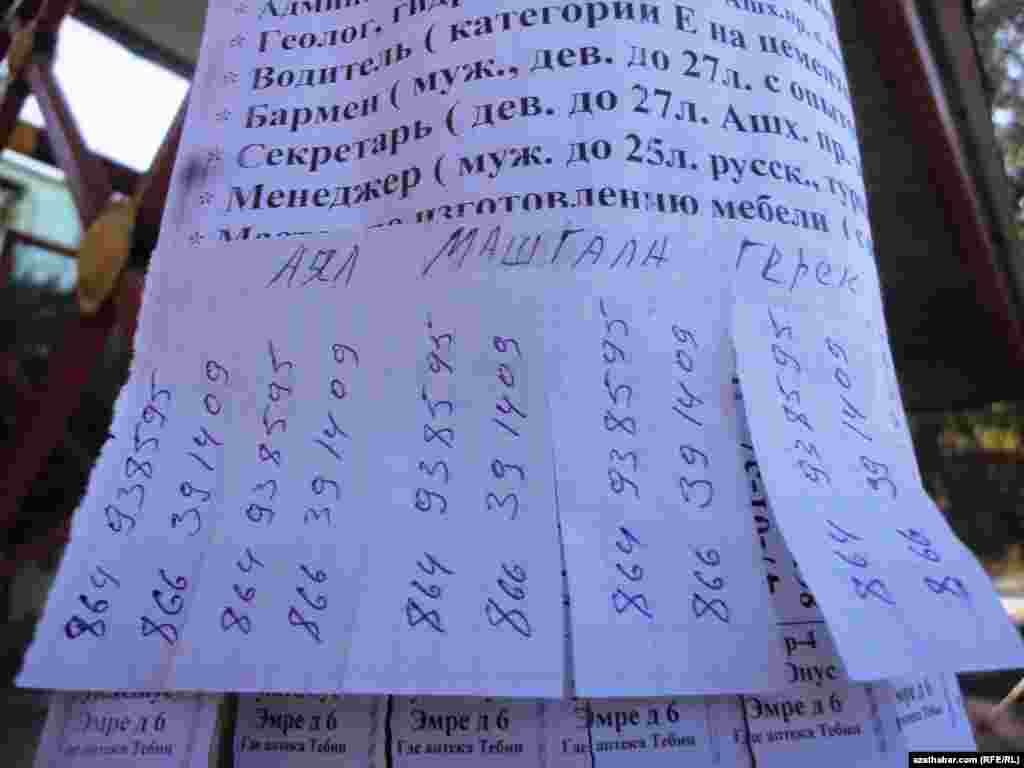 * Геолог,
* Водитель ( категории Е на
* Бармен ( муж., дев. до 27л. с
* Секретарь ( дев. до 27л. Ашх. пр.
* Менеджер ( муж. до 25л. русск.,
изготовлению мебели
АЯЛ МАШГАЛА ГЕРЕК
864 938595
866 391409
864 938595
866 391409
864 938595
866 391409
864 938595
866 391409
864 938595
866 391409
р-4
Энус
Эмре д 6
Где аптека Тебип
Эмре д 6
Где аптека Тебип
Эмре д 6
Где аптека Тебип
Эмре д 6
Где аптека Тебип
Эмре д 6
Где аптека Тебип
azathabar.com (RFE/RL)